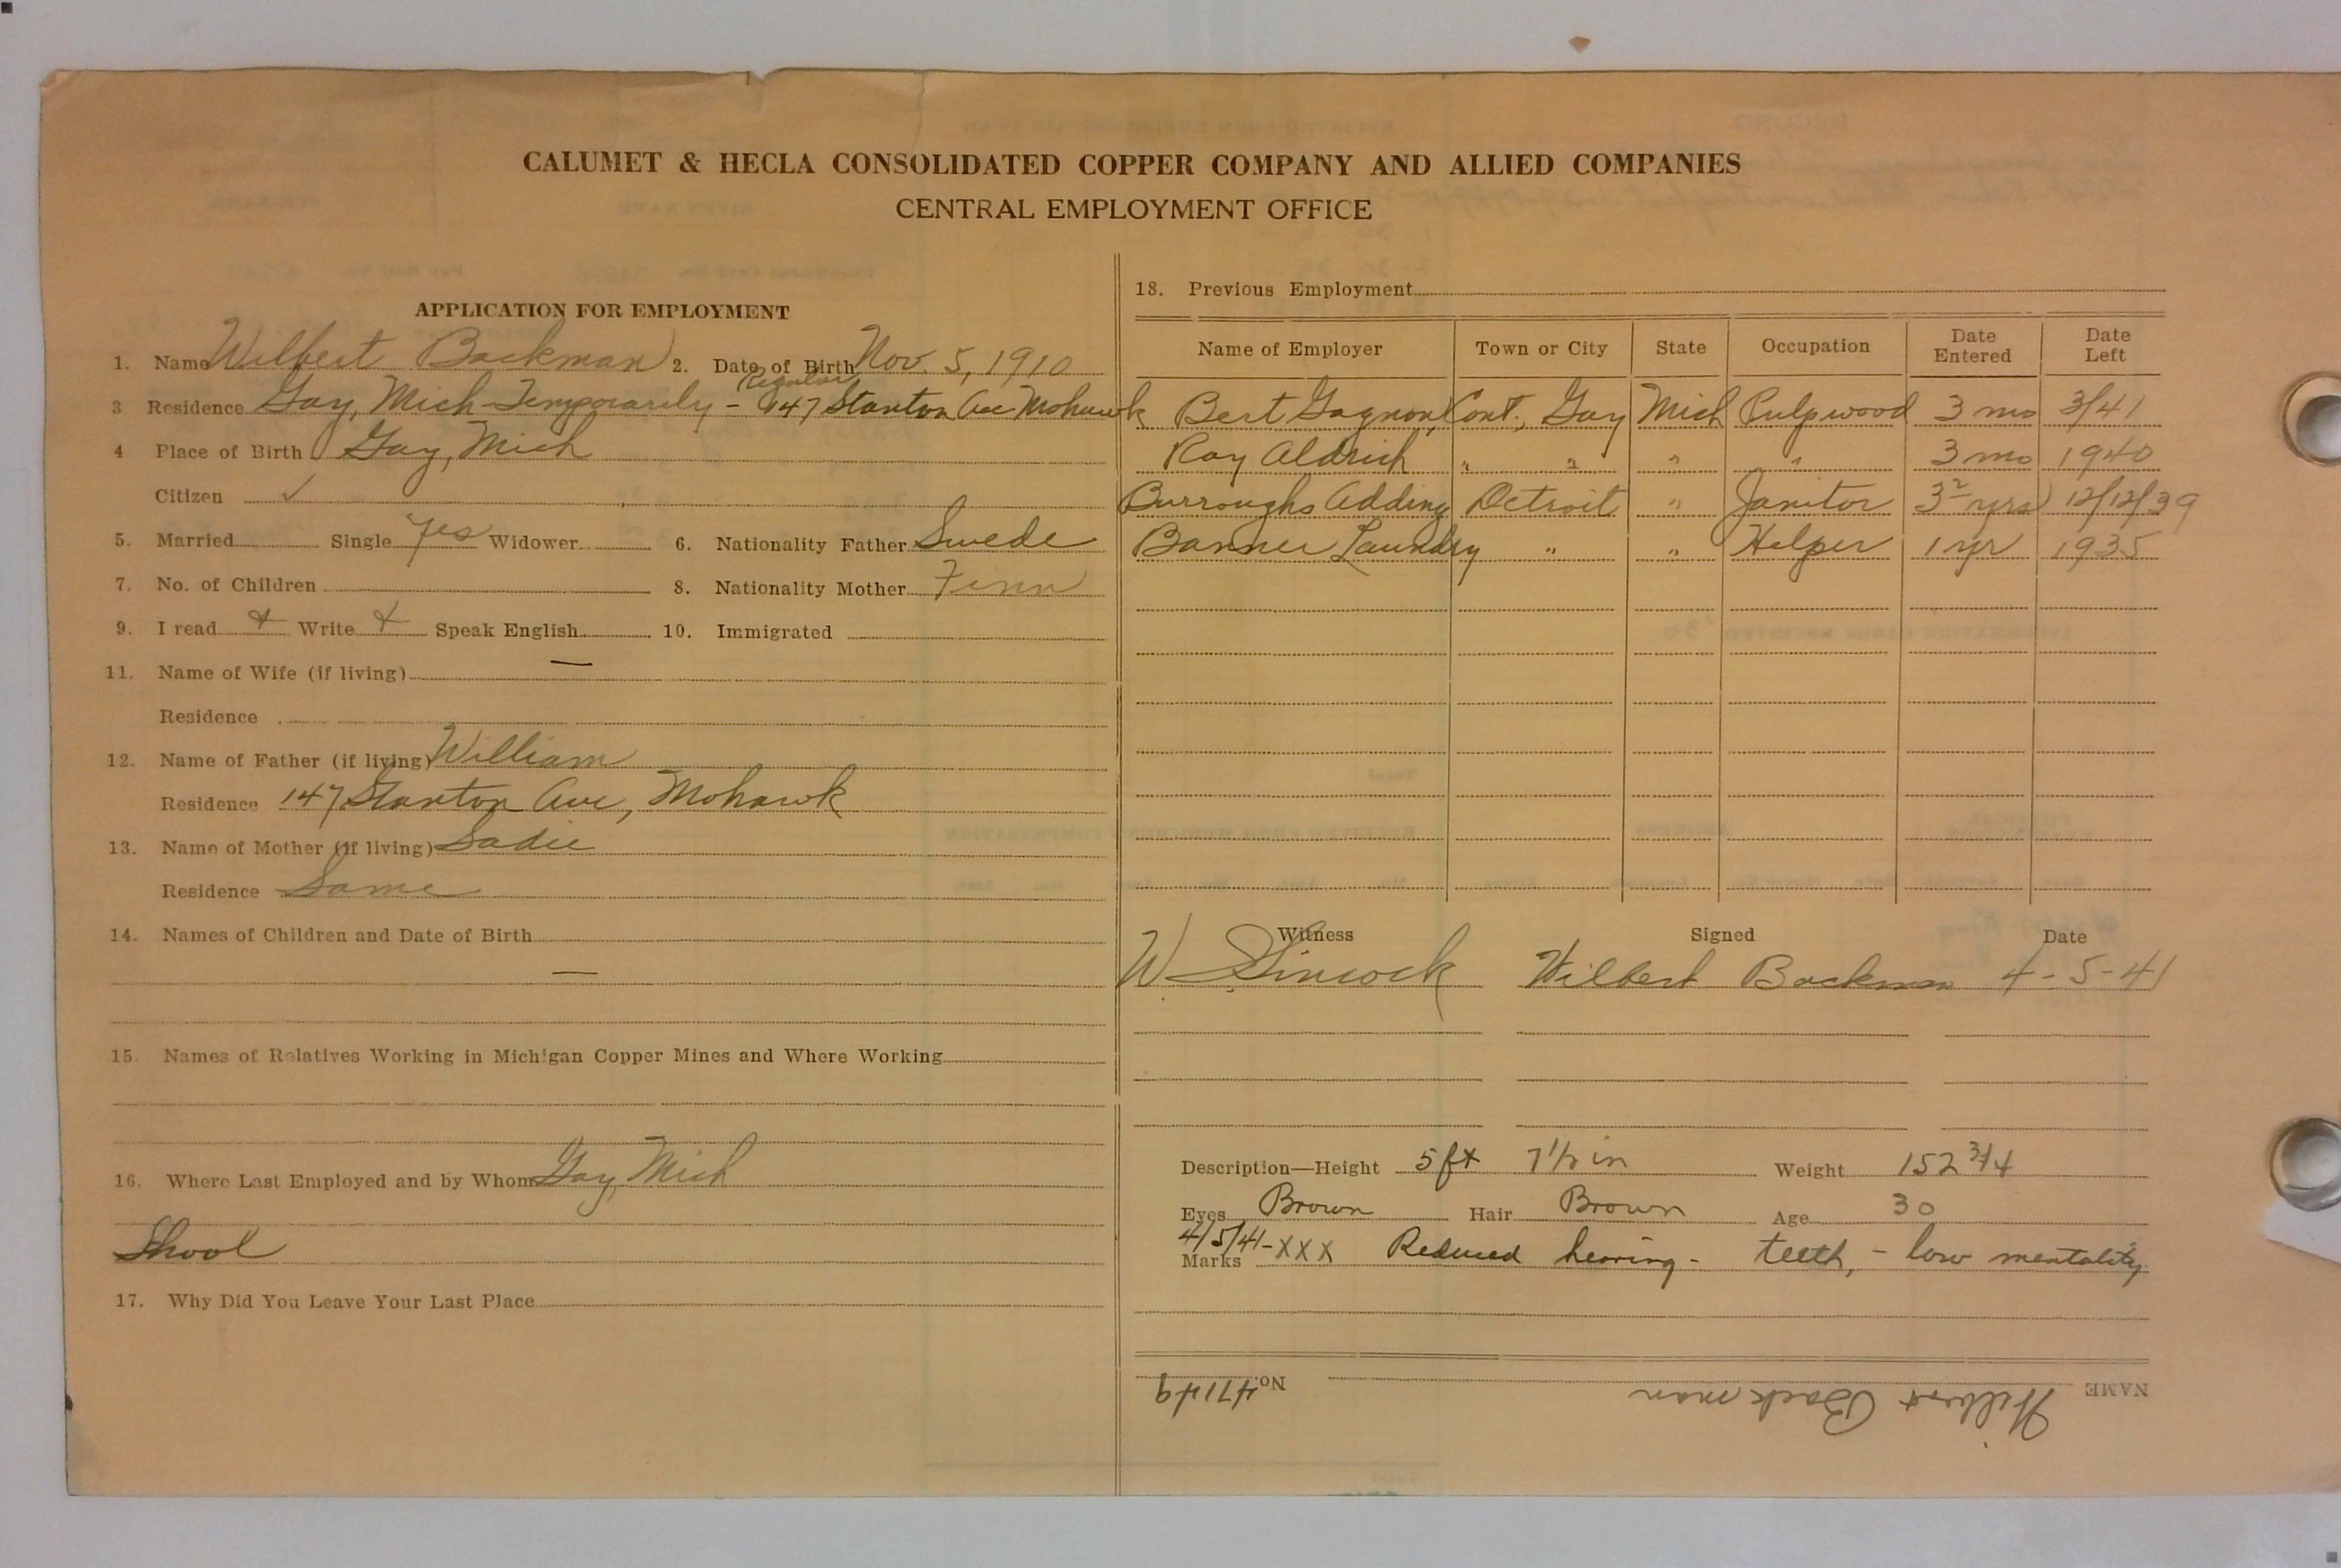 CALUMET & HECLA CONSOLIDATED COPPER COMPANY AND ALLIED COMPANIES
CENTRAL EMPLOYMENT OFFICE
APPLICATION FOR EMPLOYMENT
1. Name Wilbert Backman 2. Date of Birth Nov. 5, 1910
Regular
3 Residence Gay, Mich - Temporarily - 147 Stanton Ave Mohawk
4 Place of Birth Gay, Mich
Citizen ✓
5. Married Single yes Widower 6. Nationality Father Swede
7. No. of Children 8. Nationality Mother Finn
9. I read x Write x Speak English 10. Immigrated
11. Name of Wife (if living) —
Residence
12. Name of Father (if living) William
Residence 147 Stanton Ave, Mohawk
13. Name of Mother (if living) Sadie
Residence Same
14. Names of Children and Date of Birth
—
15. Names of Relatives Working in Michigan Copper Mines and Where Working
16. Where Last Employed and by Whom Gay, Mich
17. Why Did You Leave Your Last Place
18. Previous Employment
Name of Employer Town or City State Occupation Date Entered Date Left
Bert Gagnon, Cont., Gay Mich Pulpwood 3 mo 3/41
Ray Aldrich " " " " 3 mo 1940
Burroughs Adding Detroit " Janitor 3 yrs 12/12/39
Banner Laundry " " Helper 1 yr 1935
Witness Signed Date
W. Sincock Wilbert Backman 4-5-41
Description—Height 5 ft 7 1/2 in Weight 152 3/4
Eyes Brown Hair Brown Age 30
4/5/41 - XXX Reduced hearing - teeth, - low mentality
Marks
NAME Wilbert Backman No. 47149